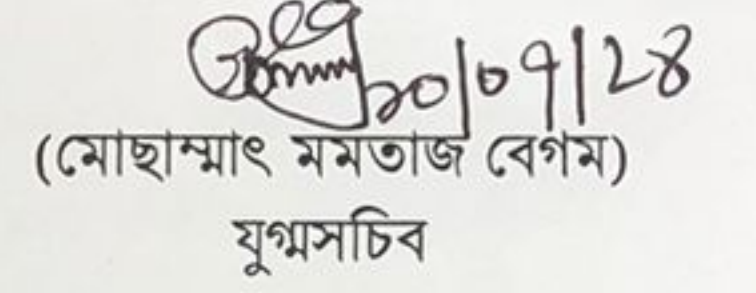 ২০/০৭/২৪
(মোছাম্মাৎ মমতাজ বেগম)
যুগ্মসচিব